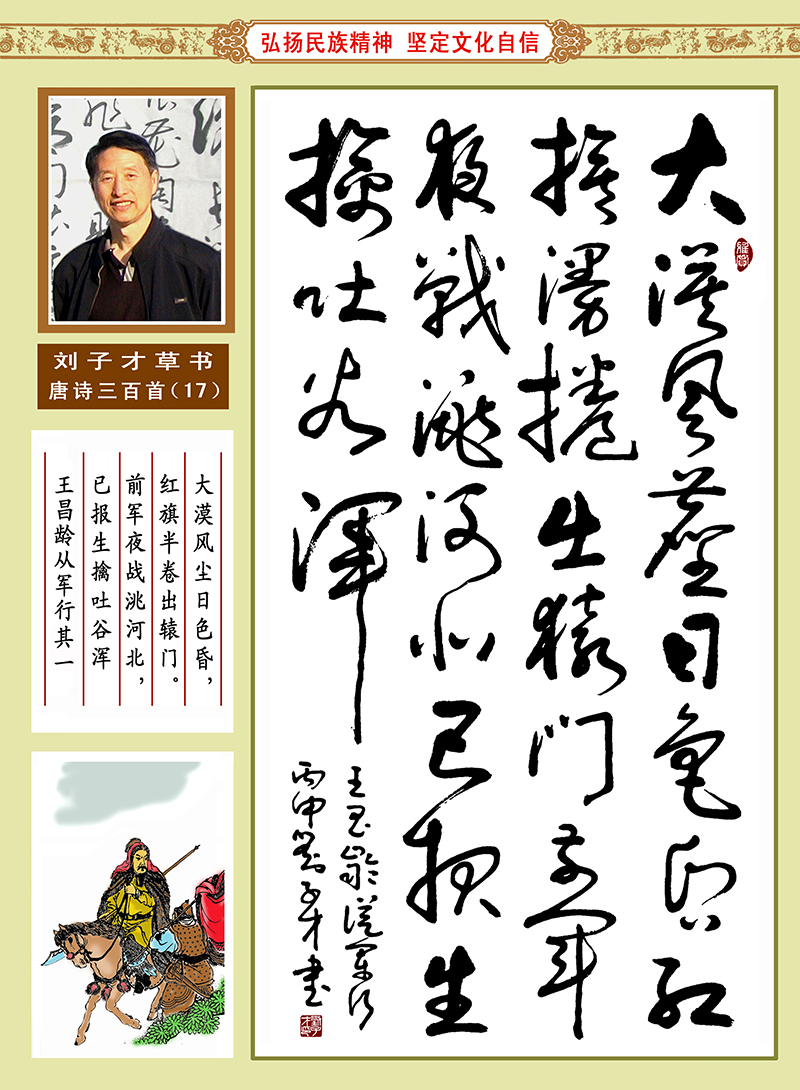 弘扬民族精神 坚定文化自信
刘子才草书
唐诗三百首(17)
大漠风尘日色昏，
红旗半卷出辕门。
前军夜战洮河北，
已报生擒吐谷浑
王昌龄从军行其一
大漠風塵日色昏紅
旗漫捲出轅門前軍
夜戰洮河北已报生
擒吐谷渾
王昌龄從軍行
丙申劉子才書